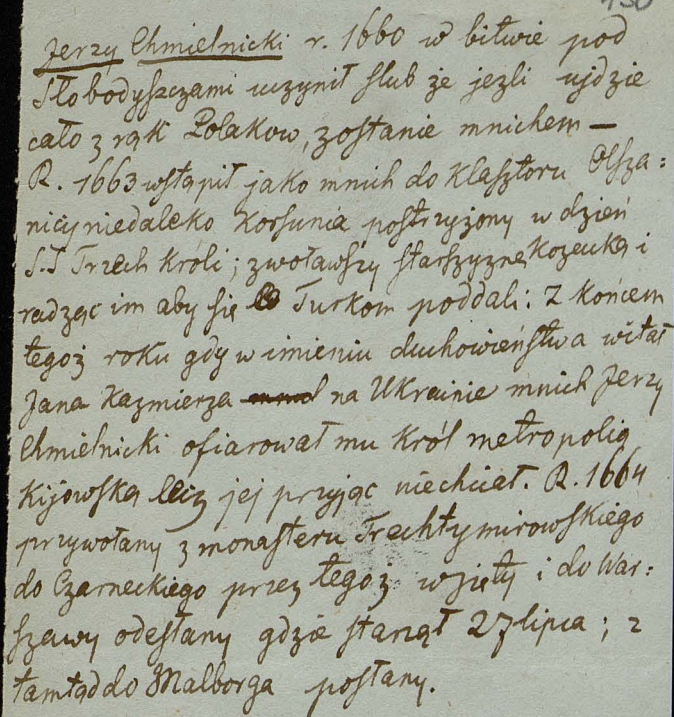 130
Jerzy Chmielnicki r. 1660 w bitwie pod
Słobodyszczami uczynił slub że jezli ujdzie
cało z rąk Polakow, zostanie mnichem —
R. 1663 wstąpił jako mnich do klasztoru Olsza:
nicy niedaleko Korsunia postrzyżony w dzień
S.S Trzech króli; zwoławszy starszyznę kozecką i
radząc im aby się Turkom poddali: Z końcem
tegoż roku gdy w imieniu duchowieństwa witał
Jana Kazmierza na Ukrainie mnich Jerzy
Chmielnicki ofiarował mu król metropolią
Kijowską lecz jej przyjąc niechciał. R. 1664
przywołany z monasteru Trechtymirowskiego
do Czarneckiego przez tegoż wzięty i do War:
szawy odesłany gdzie stanął 27 lipca; z
tamtąd do Malborga posłany.